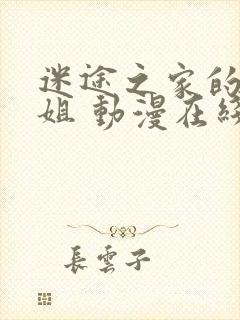 迷途之家的
姐 動漫在綫
長雲子